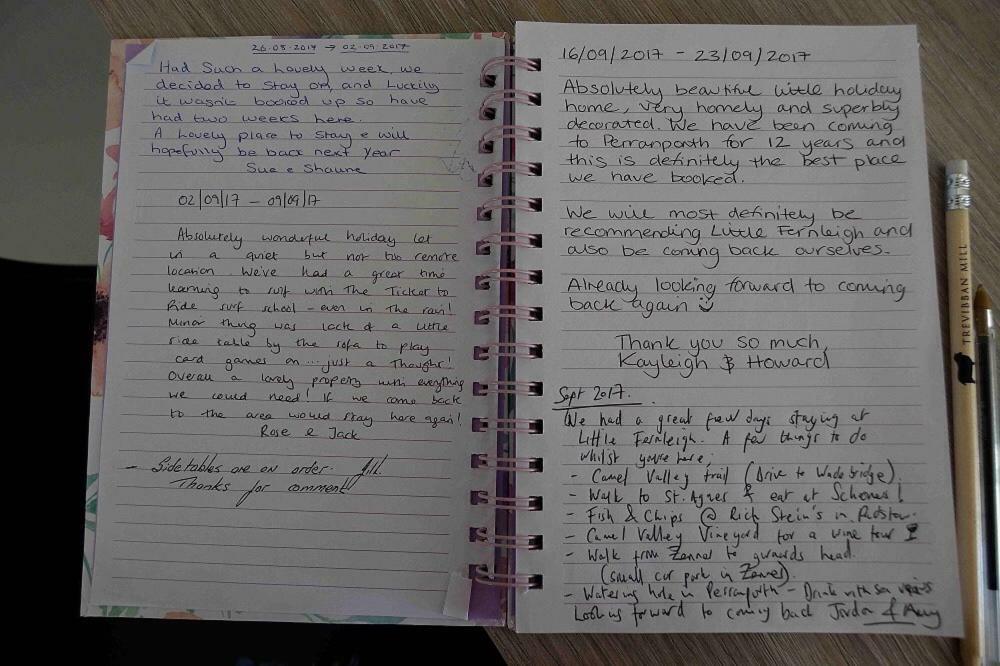 26.08.2017 → 02.09.2017
Had Such a Lovely week, we
decided to stay on, and Luckily
it wasn't booked up so have
had two weeks here.
A Lovely place to stay & will
hopefully be back next year
Sue & Shaune
02/09/17 - 09/09/17
Absolutely wonderful holiday let
in a quiet but not too remote
location. We've had a great time
learning to surf with The Ticket to
Ride surf school - even in the rain!
Minor thing was lack of a little
side table by the sofa to play
card games on ... just a thought!
Overall a lovely property with everything
we could need! If we come back
to the area would stay here again!
Rose & Jack
- Side tables are on order. Jill.
Thanks for comment
16/09/2017 - 23/09/2017
Absolutely beautiful little holiday
home, very homely and superbly
decorated. We have been coming
to Perranporth for 12 years and
this is definitely the best place
we have booked.
We will most definitely be
recommending Little Fernleigh and
also be coming back ourselves.
Already looking forward to coming
back again
Thank you so much,
Kayleigh & Howard
Sept 2017.
We had a great few days staying at
Little Fernleigh. A few things to do
whilst you're here;
- Camel Valley trail (Drive to Wadebridge).
- Walk to St. Agnes & eat at Schooners!
- Fish & Chips @ Rick Stein's in Padstow.
- Camel Valley Vineyard for a wine tour
- Walk from Zennor to gurnards head.
(small car park in Zennor).
- Watering hole in Perranporth - Drink with sea views
Looking forward to coming back Jordan & Amy
TREVIBBAN MILL